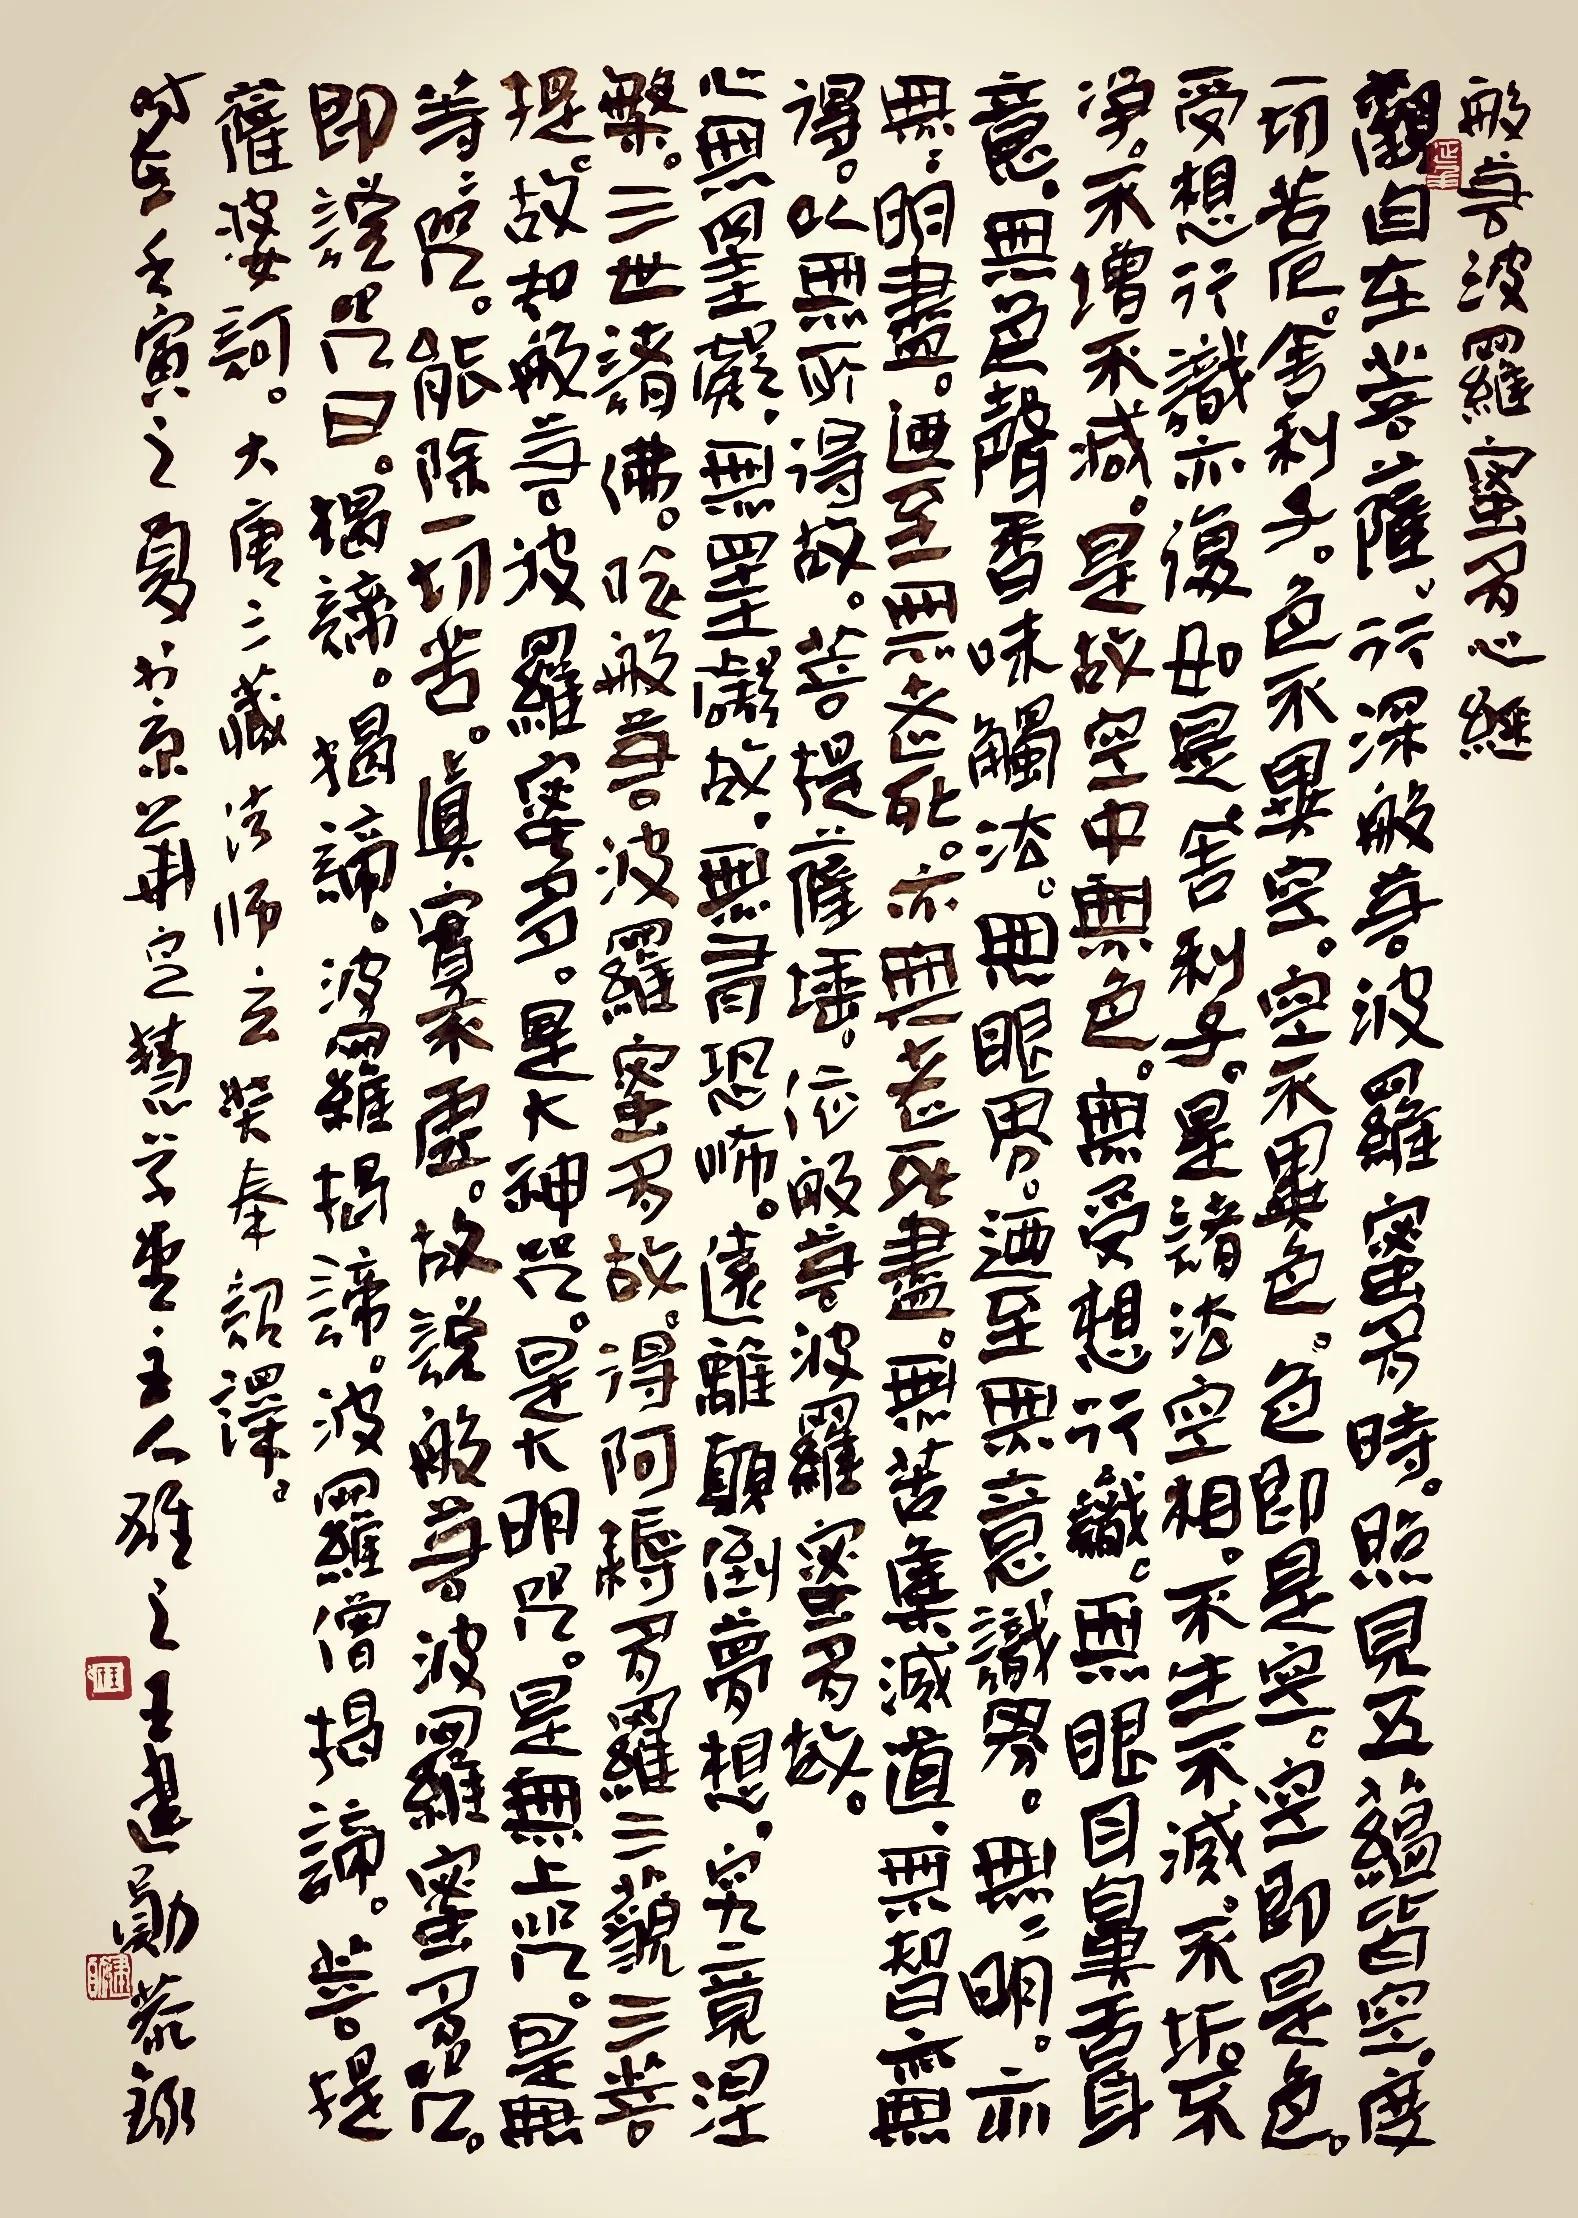 般若波羅蜜多心經
觀自在菩薩。行深般若波羅蜜多時。照見五蘊皆空。度
一切苦厄。舍利子。色不異空。空不異色。色即是空。空即是色。
受想行識亦復如是。舍利子。是諸法空相。不生不滅。不垢不
淨。不增不減。是故空中無色。無受想行識。無眼耳鼻舌身
意。無色聲香味觸法。無眼界。迺至無意識界。無無明。亦
無無明盡。迺至無老死。亦無老死盡。無苦集滅道。無智亦無
得。以無所得故。菩提薩埵。依般若波羅蜜多故。
心無罣礙。無罣礙故。無有恐怖。遠離顛倒夢想。究竟涅
槃。三世諸佛。依般若波羅蜜多故。得阿耨多羅三藐三菩
提。故知般若波羅蜜多。是大神咒。是大明咒。是無上咒。是無
等等咒。能除一切苦。真實不虛。故說般若波羅蜜多咒。
即說咒曰。揭諦。揭諦。波羅揭諦。波羅僧揭諦。菩提
薩婆訶。大唐三藏法师玄奘奉詔譯。
时在壬寅之夏於京兆定慧堂主人雄之王建勛恭錄